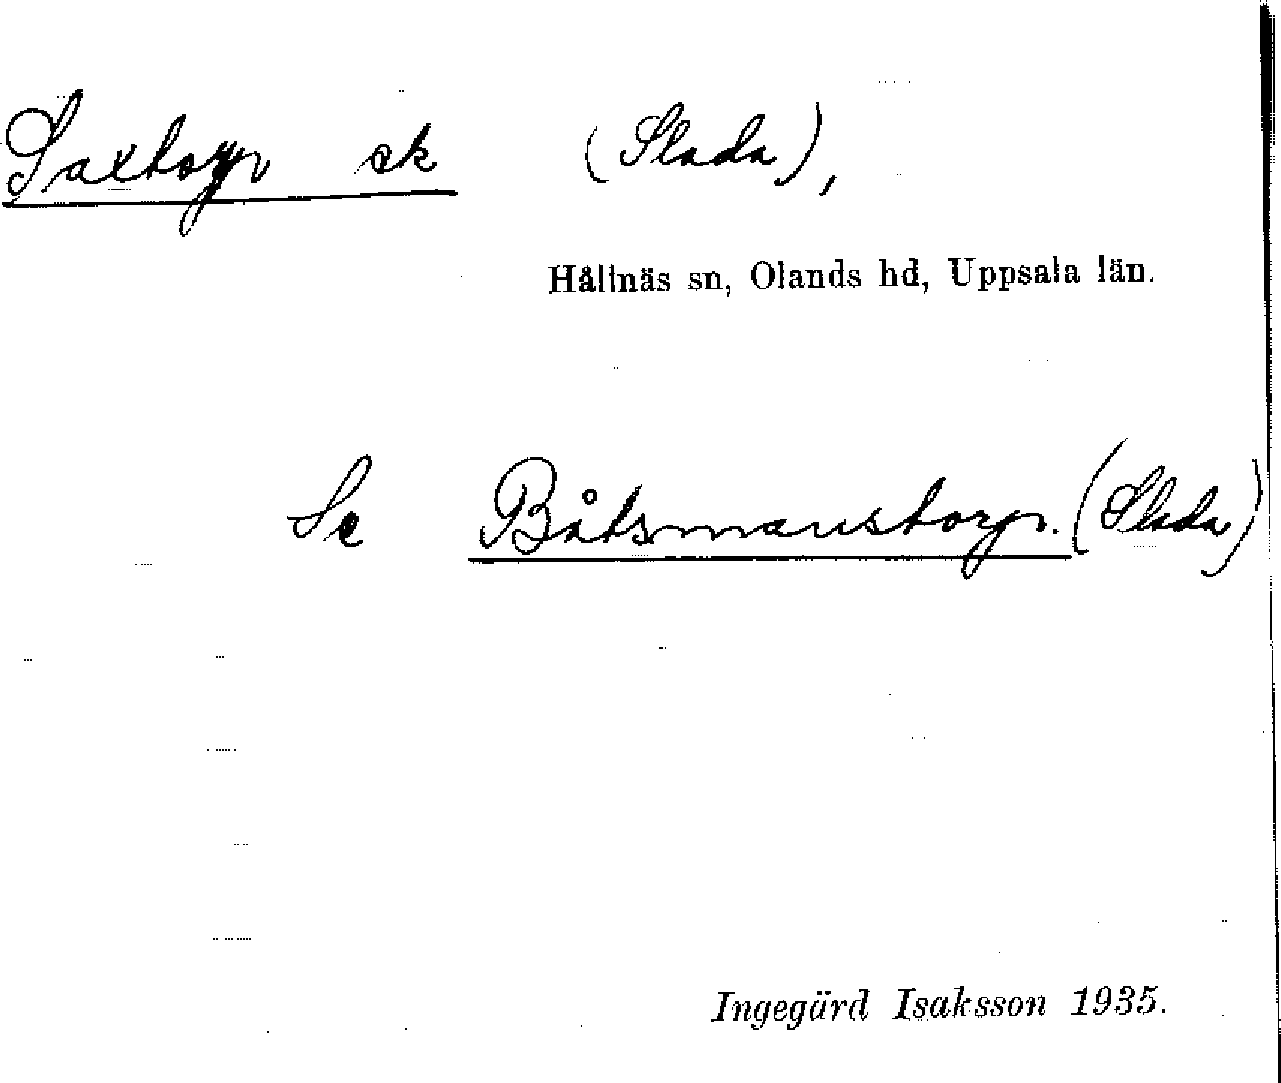 Saxtorp sk (Slada),
Hållnäs sn, Olands hd, Uppsala län.
Se Båtsmanstorp. (Slada)
Ingegärd Isaksson 1935.